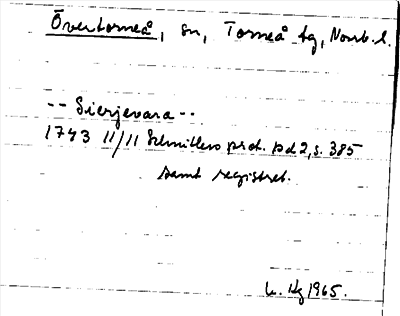 Övertorneå, sn, Torneå tg, Norrb. l.
-- Sierjevara --
1743 11/11 Schmitlers prot. bd 2, s. 385
samt registret.
1965.